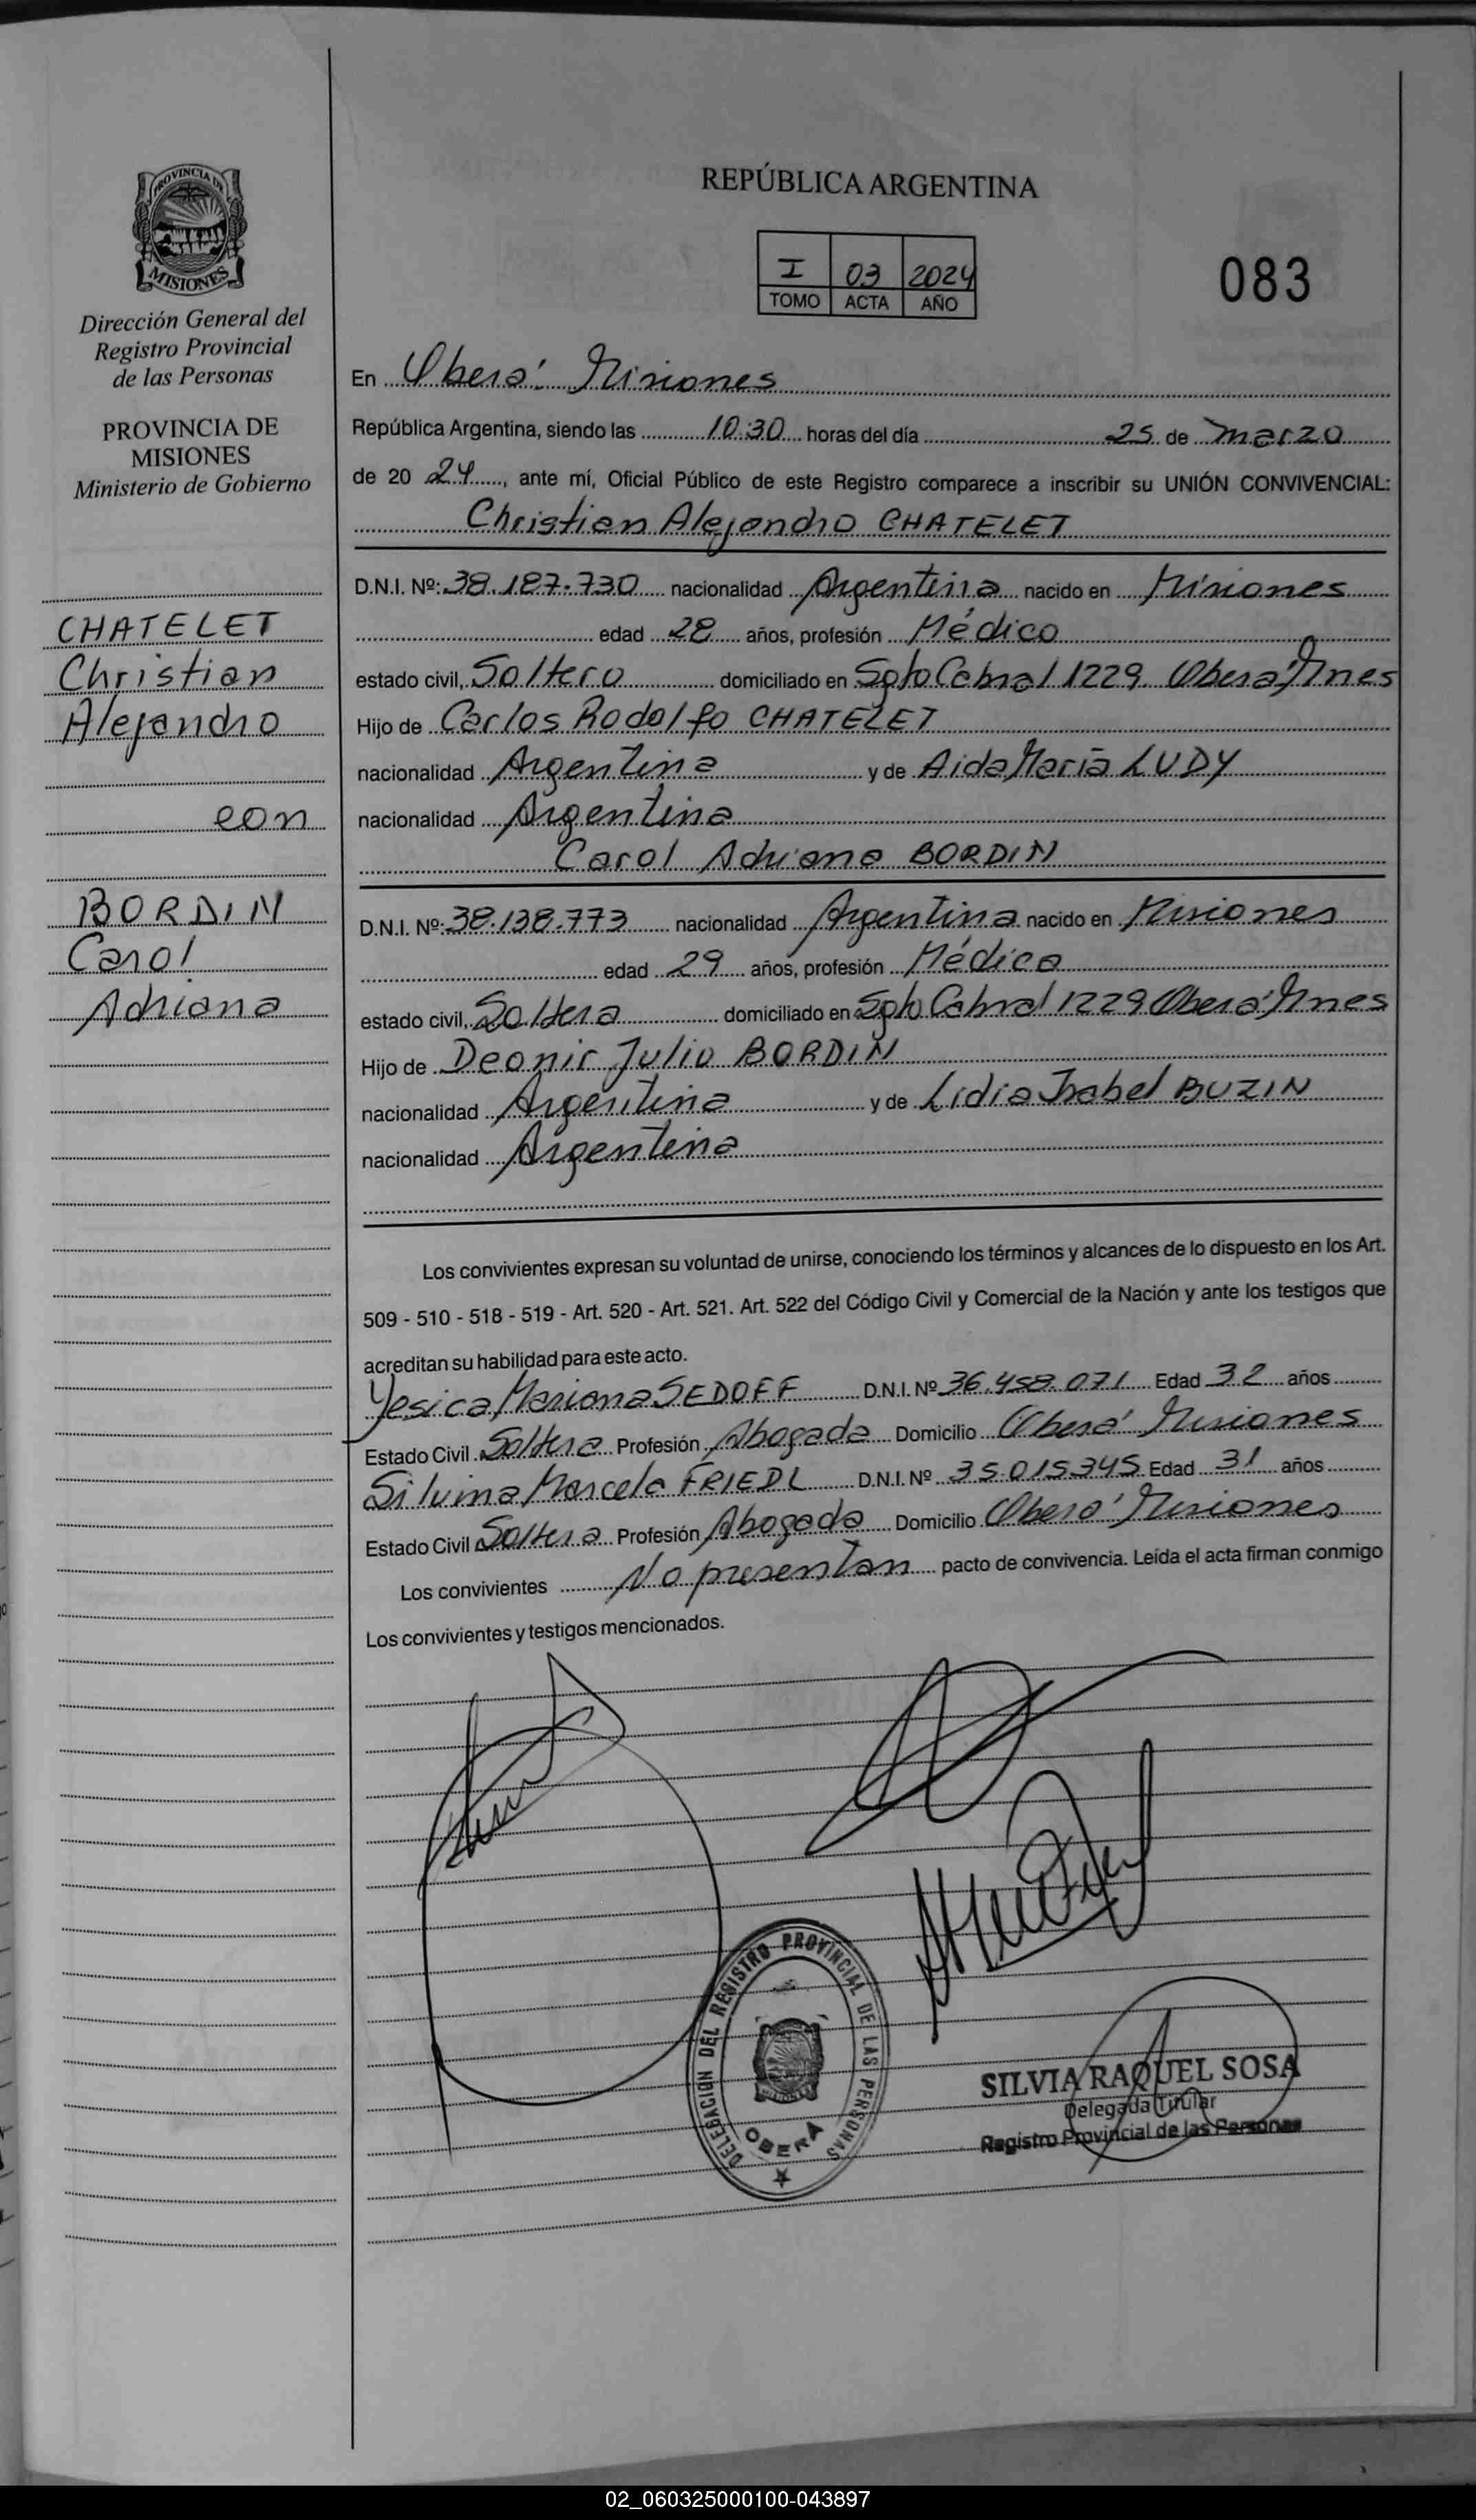 PROVINCIA DE
MISIONES
Dirección General del
Registro Provincial
de las Personas
PROVINCIA DE
MISIONES
Ministerio de Gobierno
CHATELET
Christian
Alejandro
con
BORDIN
Carol
Adriana
REPÚBLICA ARGENTINA
I 03 2024
TOMO ACTA AÑO
083
En Oberá Misiones
República Argentina, siendo las 10:30 horas del día 25 de marzo
de 20 24, ante mí, Oficial Público de este Registro comparece a inscribir su UNIÓN CONVIVENCIAL:
Christian Alejandro CHATELET
D.N.I. Nº: 38.187.730 nacionalidad Argentina nacido en Misiones
edad 28 años, profesión Médico
estado civil, Soltero domiciliado en Sgto Cabral 1229 Oberá Mnes
Hijo de Carlos Rodolfo CHATELET
nacionalidad Argentina y de Aida María LUDY
nacionalidad Argentina
Carol Adriana BORDIN
D.N.I. Nº: 38.138.773 nacionalidad Argentina nacido en Misiones
edad 29 años, profesión Médica
estado civil, Soltera domiciliado en Sgto Cabral 1229 Oberá Mnes
Hijo de Deonir Julio BORDIN
nacionalidad Argentina y de Lidia Isabel BUZIN
nacionalidad Argentina
Los convivientes expresan su voluntad de unirse, conociendo los términos y alcances de lo dispuesto en los Art.
509 - 510 - 518 - 519 - Art. 520 - Art. 521. Art. 522 del Código Civil y Comercial de la Nación y ante los testigos que
acreditan su habilidad para este acto.
Yesica Mariana SEDOFF D.N.I. Nº 36.458.071 Edad 32 años
Estado Civil Soltera Profesión Abogada Domicilio Oberá Misiones
Silvina Marcela FRIEDL D.N.I. Nº 35.015.345 Edad 31 años
Estado Civil Soltera Profesión Abogada Domicilio Oberá Misiones
Los convivientes No presentan pacto de convivencia. Leída el acta firman conmigo
Los convivientes y testigos mencionados.
DELEGACIÓN DEL REGISTRO PROVINCIAL DE LAS PERSONAS
OBERÁ
SILVIA RAQUEL SOSA
Delegada Titular
Registro Provincial de las Personas
02_060325000100-043897